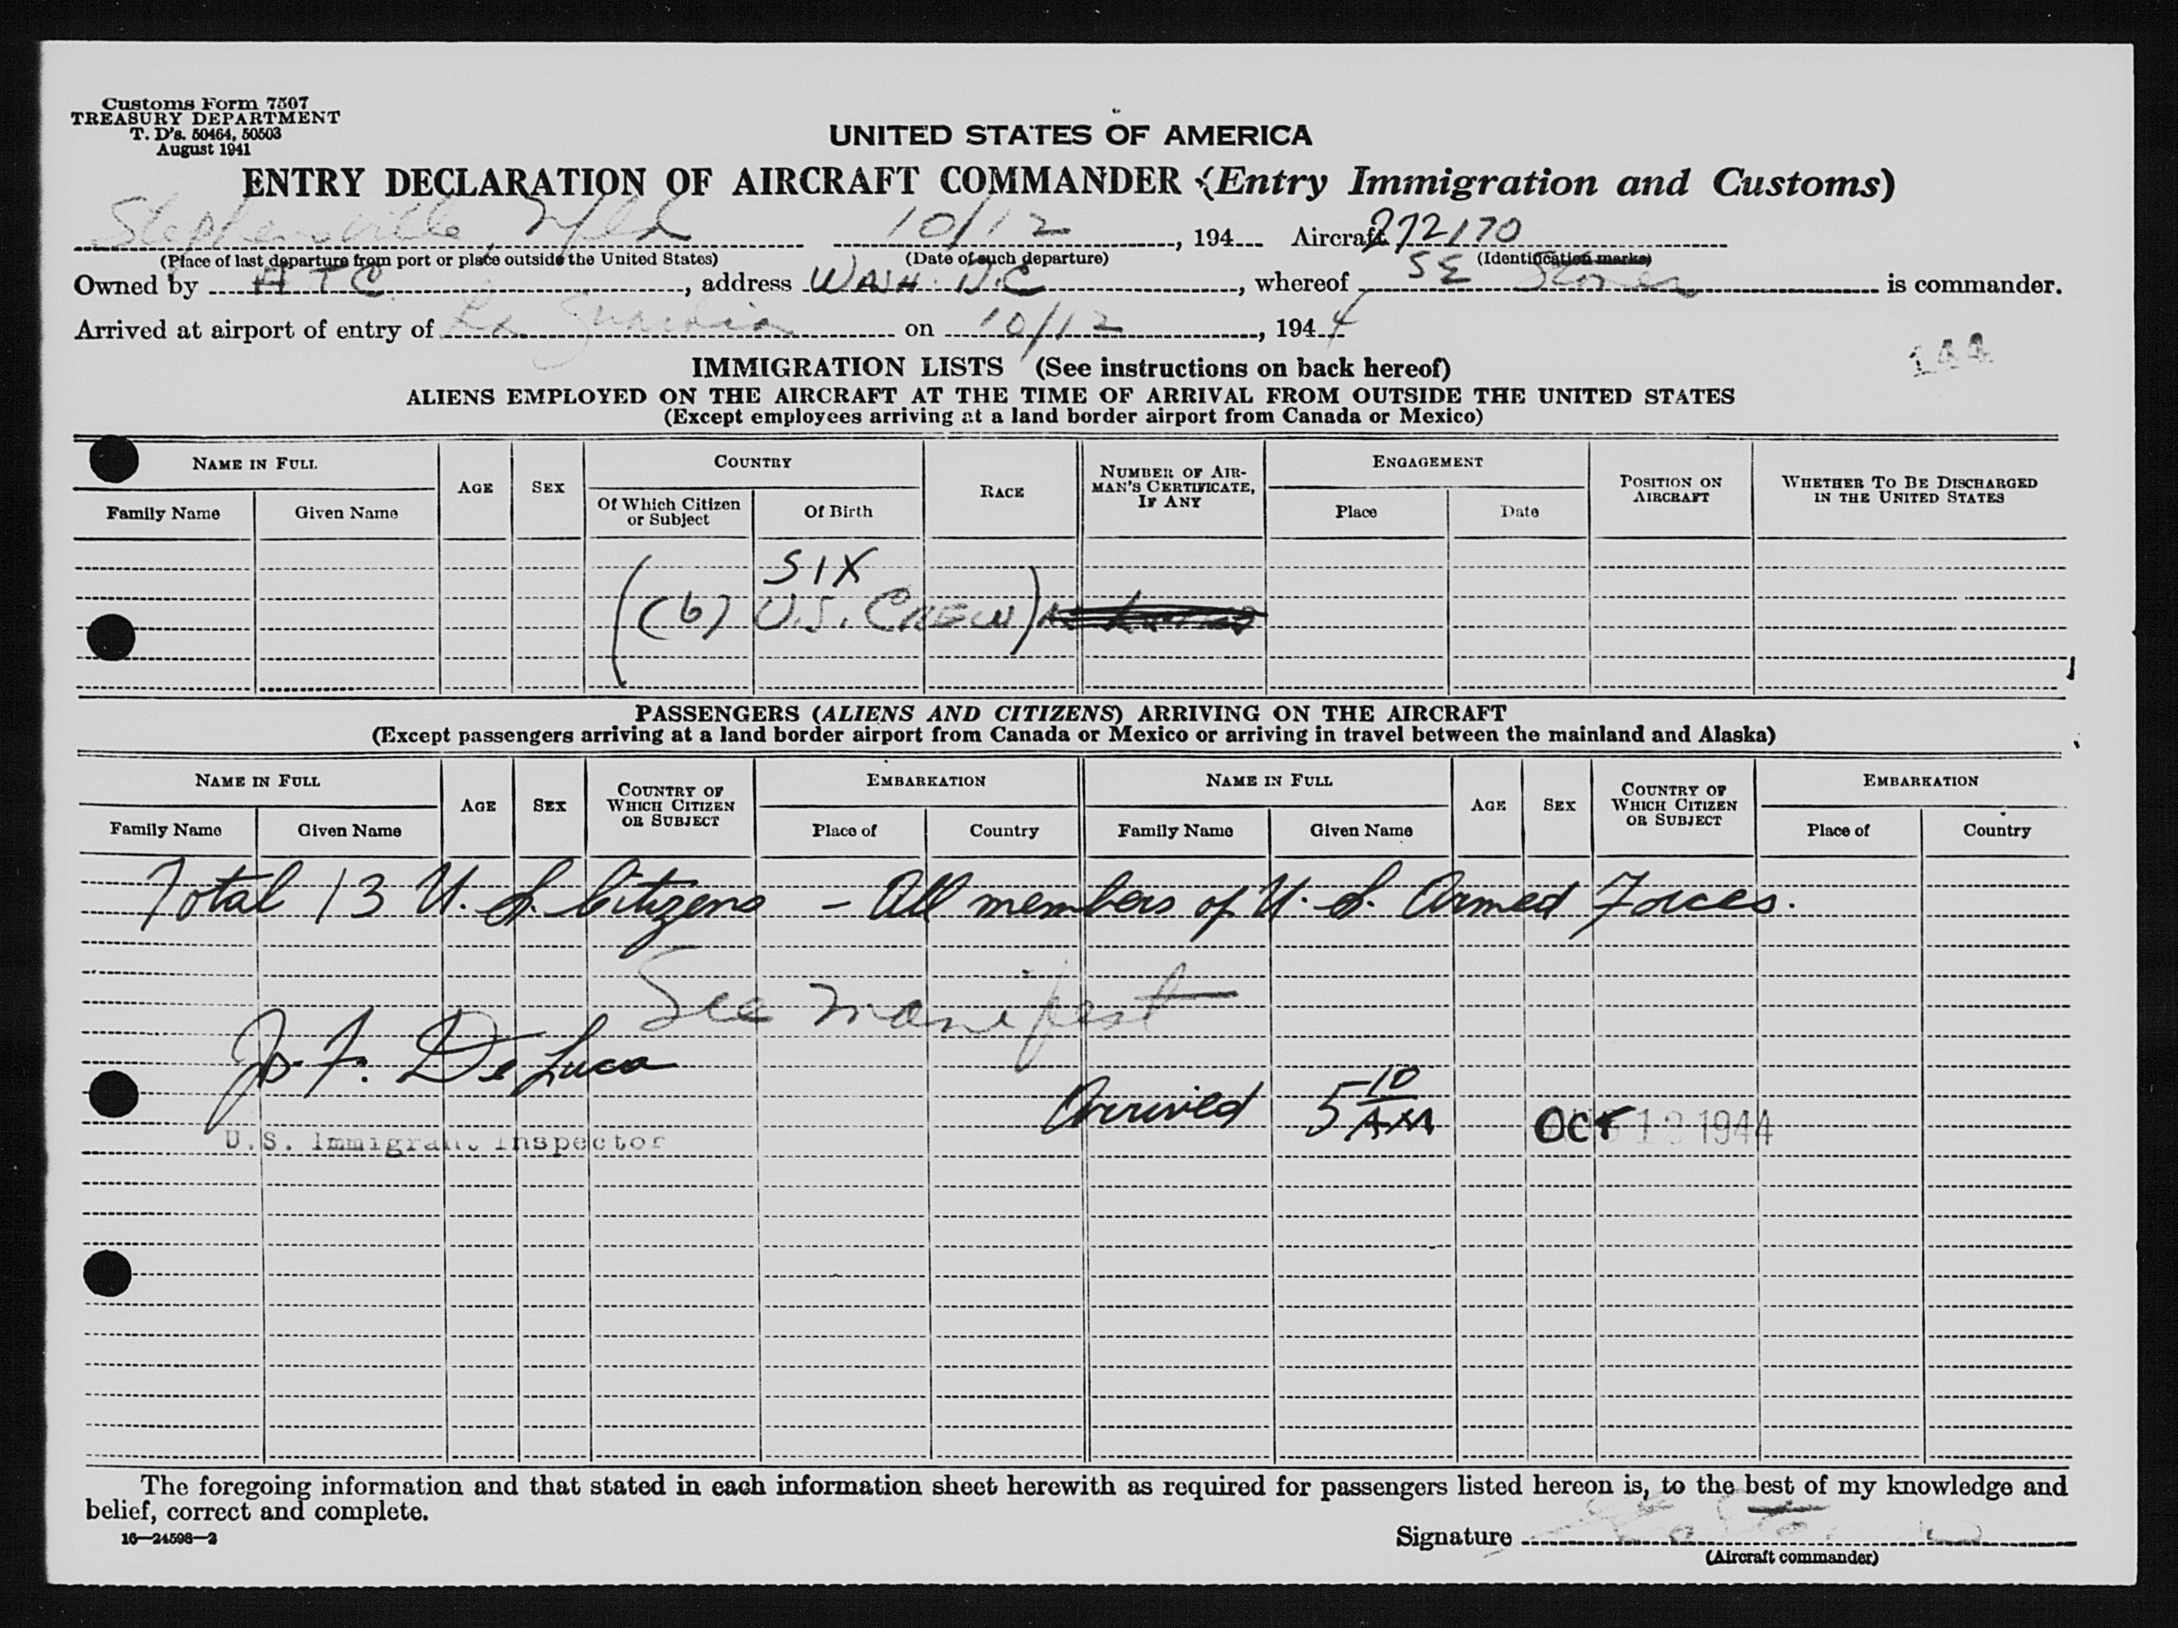 Customs Form 7507
TREASURY DEPARTMENT
T. D's. 50464, 50503
August 1941
UNITED STATES OF AMERICA
ENTRY DECLARATION OF AIRCRAFT COMMANDER (Entry Immigration and Customs)
Stephensville, Nfld 10/12, 194 Aircraft 272170
(Place of last departure from port or place outside the United States) (Date of such departure) (Identification marks)
Owned by ATC, address WASH. D.C, whereof SE Stover is commander.
Arrived at airport of entry of La Guardia on 10/12, 1944
144
IMMIGRATION LISTS (See instructions on back hereof)
ALIENS EMPLOYED ON THE AIRCRAFT AT THE TIME OF ARRIVAL FROM OUTSIDE THE UNITED STATES
(Except employees arriving at a land border airport from Canada or Mexico)
NAME IN FULL AGE SEX COUNTRY RACE NUMBER OF AIRMAN'S CERTIFICATE, IF ANY ENGAGEMENT POSITION ON AIRCRAFT WHETHER TO BE DISCHARGED IN THE UNITED STATES
Family Name Given Name Of Which Citizen or Subject Of Birth Place Date
SIX
((6) U.S. CREW)
PASSENGERS (ALIENS AND CITIZENS) ARRIVING ON THE AIRCRAFT
(Except passengers arriving at a land border airport from Canada or Mexico or arriving in travel between the mainland and Alaska)
NAME IN FULL AGE SEX COUNTRY OF WHICH CITIZEN OR SUBJECT EMBARKATION NAME IN FULL AGE SEX COUNTRY OF WHICH CITIZEN OR SUBJECT EMBARKATION
Family Name Given Name Place of Country Family Name Given Name Place of Country
Total 13 U.S. Citizens - All members of U.S. Armed Forces.
See manifest
Jo. F. De Luca
Arrived 5 10 AM OCT 12 1944
U.S. Immigrant Inspector
The foregoing information and that stated in each information sheet herewith as required for passengers listed hereon is, to the best of my knowledge and
belief, correct and complete.
16—24598—2
Signature
(Aircraft commander)